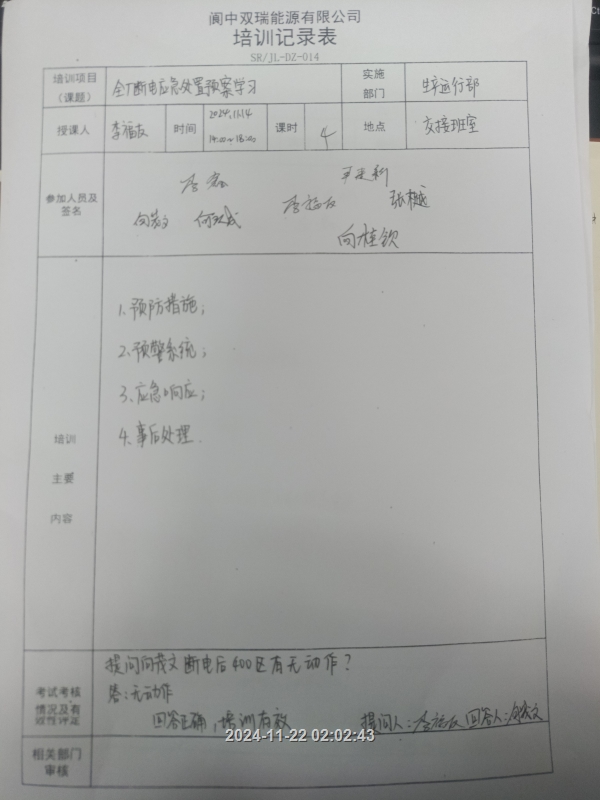 阆中双瑞能源有限公司
培训记录表
SR/JL-DZ-014
培训项目（课题） 全厂断电应急处置预案学习 实施部门 生产运行部
授课人 李福友 时间 2024.11.14 14:00~18:00 课时 4 地点 交接班室
参加人员及签名
李福友 张樾
向桂钦
培训主要内容
1.预防措施；
2.预警系统；
3.应急响应；
4.事后处理.
考试考核情况及有效性评证
提问向茂文断电后400区有无动作？
答：无动作
回答正确，培训有效 提问人：李福友 回答人：向茂文
相关部门审核
2024-11-22 02:02:43